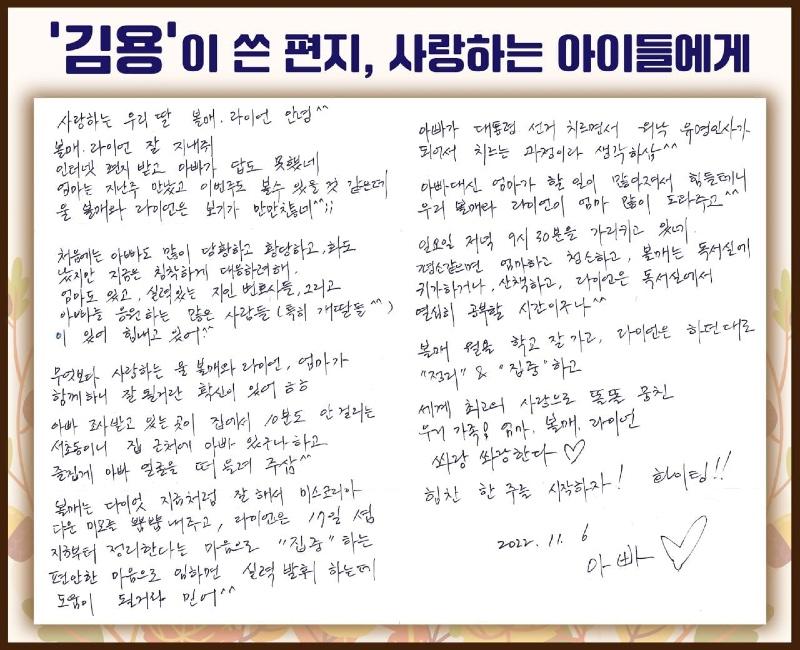 '김용'이 쓴 편지, 사랑하는 아이들에게
사랑하는 우리 딸 볼매. 라이언 안녕^^
볼매. 라이언 잘 지내쥐
인터넷 편지 받고 아빠가 답도 못했네
엄마는 지난주 만났고 이번주도 볼수 있을 것 같은데
울 볼매와 라이언은 보기가 만만찮네^^;;
처음에는 아빠도 많이 당황하고 황당하고, 화도
났지만 지금은 침착하게 대응하려해.
엄마도 있고, 실력있는 지인 변호사들, 그리고
아빠를 응원하는 많은 사람들 (특히 개딸들^^)
이 있어 힘내고 있어^^
무엇보다 사랑하는 울 볼매와 라이언, 엄마가
함께하니 잘 될거란 확신이 있어 ㅎㅎ
아빠 조사받고 있는 곳이 집에서 10분도 안 걸리는
서초동이니 집 근처에 아빠 있구나 하고
즐겁게 아빠 얼굴을 떠 올려 주삼^^
볼매는 다이엇 지금처럼 잘 해서 미스코리아
다운 미모를 뿜뿜 내주고, 라이언은 17일 셤
지금부터 정리한다는 마음으로 "집중"하는
편안한 마음으로 임하면 실력 발휘 하는데
도움이 될거라 믿어^^
아빠가 대통령 선거 치르면서 워낙 유명인사가
되어서 치르는 과정이라 생각하삼^^
아빠대신 엄마가 할 일이 많아져서 힘들테니
우리 볼매랑 라이언이 엄마 많이 도와주고^^
일요일 저녁 9시 30분을 가리키고 있네.
평소같으면 엄마하고 청소하고, 볼매는 독서실에
가하거나, 산책하고, 라이언은 독서실에서
열심히 공부할 시간이구나^^
볼매 월욜 학교 잘 가고, 라이언은 하던대로
"정리" & "집중"하고
세계 최고의 사랑으로 똘똘 뭉친
우리 가족 엄마. 볼매. 라이언
쏴랑 쏴랑한다 ♡
힘찬 한 주를 시작하자! 화이팅!!
2022. 11. 6
아빠 ♡